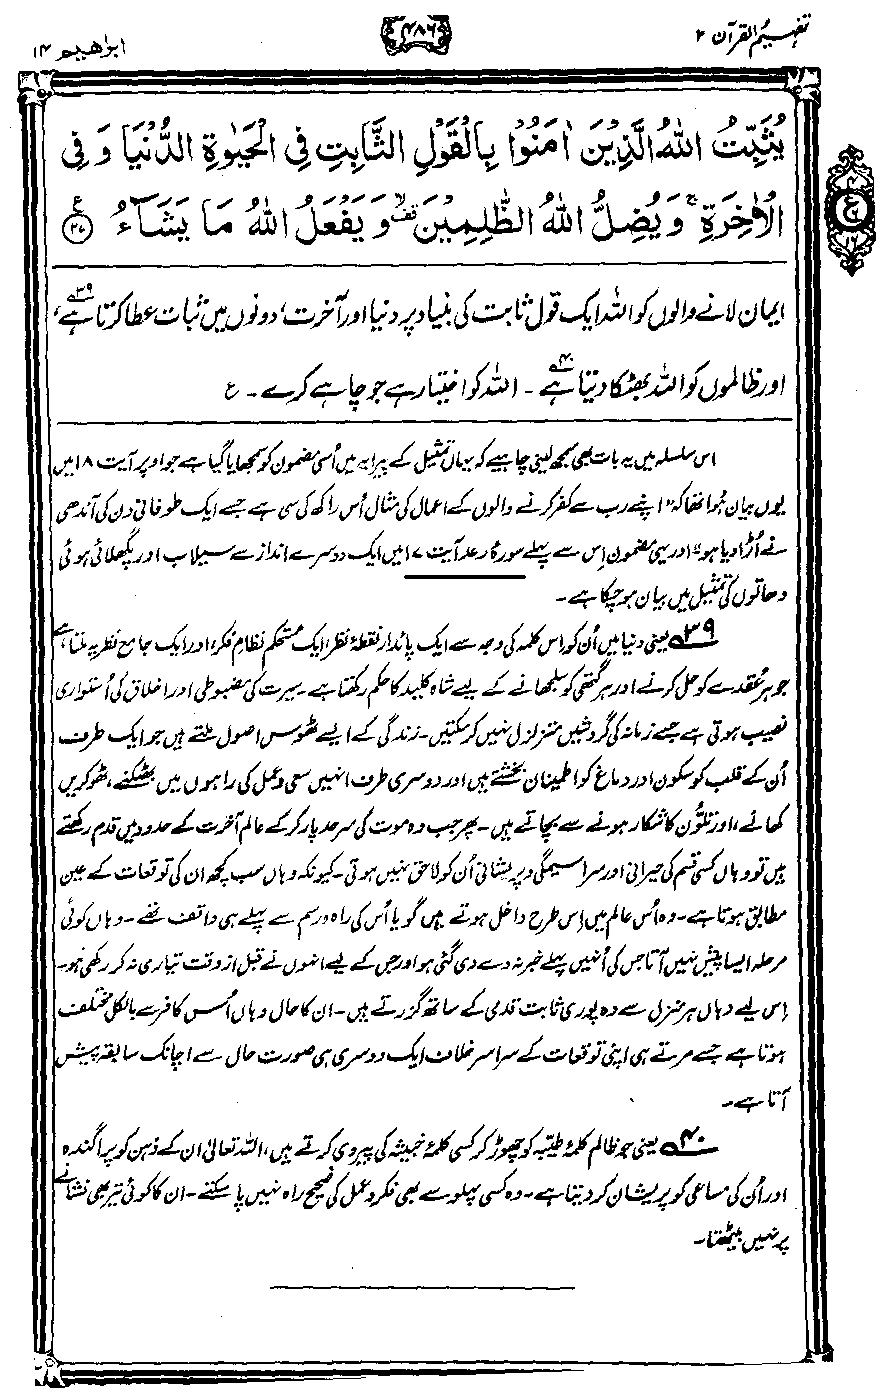 تفہیم القرآن ۲
۴۸۶
ابراھیم ۱۴
يُثَبِّتُ اللهُ الَّذِيْنَ اٰمَنُوْا بِالْقَوْلِ الثَّابِتِ فِي الْحَيٰوةِ الدُّنْيَا وَفِي
الْاٰخِرَةِ ۚ وَيُضِلُّ اللهُ الظّٰلِمِيْنَ ۙ وَيَفْعَلُ اللهُ مَا يَشَآءُ ﴿۲۷﴾ ع
ایمان لانے والوں کو اللہ ایک قول ثابت کی بنیاد پر دنیا اور آخرت، دونوں میں ثبات عطا کرتا ہے،۳۹
اور ظالموں کو اللہ بھٹکا دیتا ہے۴۰۔ اللہ کو اختیار ہے جو چاہے کرے۔ ع
اس سلسلہ میں یہ بات بھی سمجھ لینی چاہیے کہ یہاں تمثیل کے پیرایہ میں اُسی مضمون کو سمجھایا گیا ہے جو اوپر آیت ۱۸ میں
یوں بیان ہوا تھا کہ "اپنے رب سے کفر کرنے والوں کے اعمال کی مثال اُس راکھ کی سی ہے جسے ایک طوفانی دن کی آندھی
نے اُڑا دیا ہو" اور یہی مضمون اِس سے پہلے سورۂ رعد آیت ۱۷ میں ایک دوسرے انداز سے سیلاب اور پگھلائی ہوئی
دھاتوں کی تمثیل میں بیان ہو چکا ہے۔
۳۹ یعنی دنیا میں اُن کو اس کلمہ کی وجہ سے ایک پائدار نقطۂ نظر، ایک مستحکم نظام فکر، اور ایک جامع نظریہ ملتا ہے
جو ہر عُقدے کو حل کرنے اور ہر گتھی کو سلجھانے کے لیے شاہ کلید کا حکم رکھتا ہے۔ سیرت کی مضبوطی اور اخلاق کی اُستواری
نصیب ہوتی ہے جسے زمانہ کی گردشیں متزلزل نہیں کر سکتیں۔ زندگی کے ایسے ٹھوس اصول ملتے ہیں جو ایک طرف
اُن کے قلب کو سکون اور دماغ کو اطمینان بخشتے ہیں اور دوسری طرف انہیں سعی و عمل کی راہوں میں بھٹکنے، ٹھوکریں
کھانے، اور تلوُّن کا شکار ہونے سے بچاتے ہیں۔ پھر جب وہ موت کی سرحد پار کر کے عالم آخرت کے حدود میں قدم رکھتے
ہیں تو وہاں کسی قسم کی حیرانی اور سراسیمگی و پریشانی اُن کو لاحق نہیں ہوتی۔ کیونکہ وہاں سب کچھ ان کی توقعات کے عین
مطابق ہوتا ہے۔ وہ اُس عالم میں اِس طرح داخل ہوتے ہیں گویا اُس کی راہ و رسم سے پہلے ہی واقف تھے۔ وہاں کوئی
مرحلہ ایسا پیش نہیں آتا جس کی اُنہیں پہلے خبر نہ دے دی گئی ہو اور جس کے لیے انہوں نے قبل از وقت تیاری نہ کر رکھی ہو۔
اِس لیے وہاں ہر منزل سے وہ پوری ثابت قدمی کے ساتھ گزرتے ہیں۔ ان کا حال وہاں اُس کافر سے بالکل مختلف
ہوتا ہے جسے مرتے ہی اپنی توقعات کے سراسر خلاف ایک دوسری ہی صورت حال سے اچانک سابقہ پیش
آتا ہے۔
۴۰ یعنی جو ظالم کلمۂ طیبہ کو چھوڑ کر کسی کلمۂ خبیثہ کی پیروی کرتے ہیں، اللہ تعالیٰ ان کے ذہن کو پراگندہ
اور اُن کی مساعی کو پریشان کر دیتا ہے۔ وہ کسی پہلو سے بھی فکر و عمل کی صحیح راہ نہیں پا سکتے۔ ان کا کوئی تیر بھی نشانے
پر نہیں بیٹھتا۔